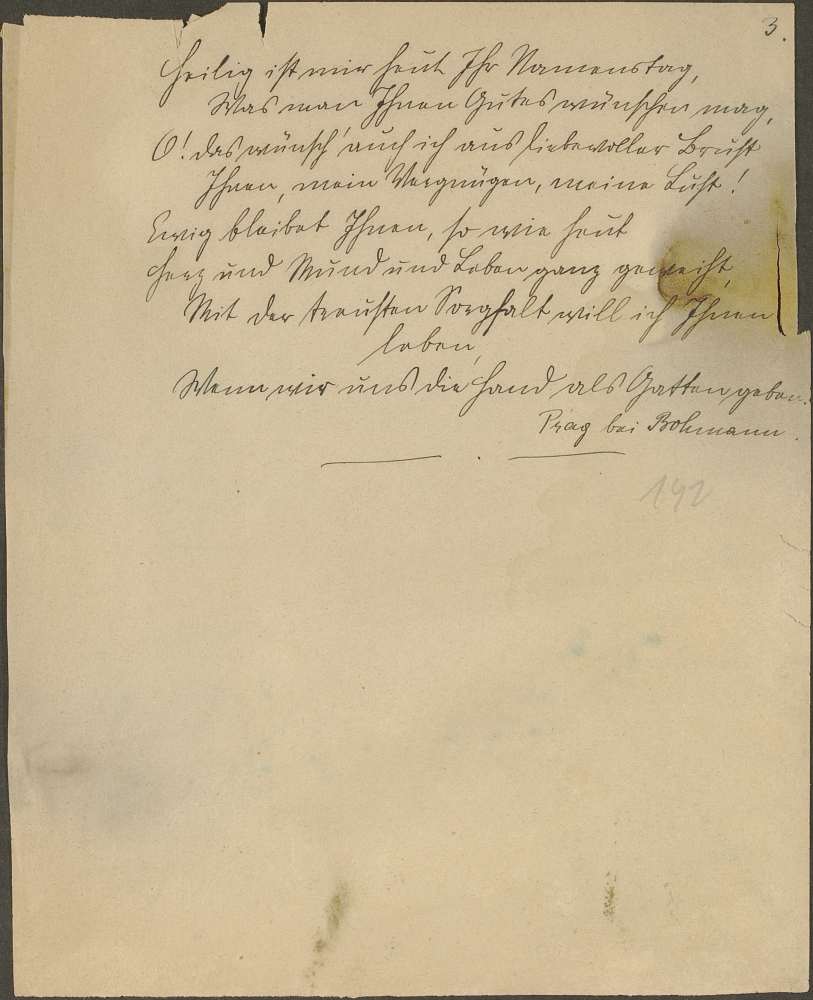 3.
Heilig ist mir heut Ihr Namenstag,
Was man Ihnen Gutes wünschen mag,
O! das wünsch' auch ich aus liebevoller Brust
Ihnen, mein Vergnügen, meine Lust!
Ewig bleibet Ihnen, so wie heut
Herz und Mund und Leben ganz geweiht,
Mit der treusten Sorgfalt will ich Ihnen
leben,
Wenn wir uns die Hand als Gatten geben.
Prag bei Bohmann.
192